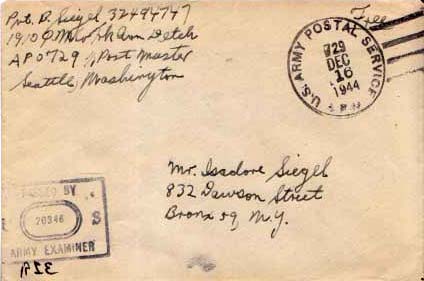 Pvt. B. Siegel 32494747
1910
APO 729 c/o Post Master
Seattle, Washington
Free
U.S. ARMY POSTAL SERVICE
729
DEC
16
1944
Mr. Isadore Siegel
832 Dawson Street
Bronx 59, N.Y.
PASSED BY
20346
S
ARMY EXAMINER